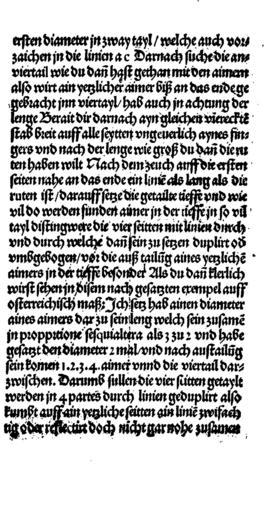 ersten diameter in zway tayl / welche auch vor-
zaichen in die linien a c Darnach suche die an-
viertail wie du dañ hast gethan mit den aimern
also wirt ain yetzlicher aimer biß an das ende ge
gebracht inn viertayl / hab auch in achtung der
lenge Berait dir darnach ayn gleichen viereckte
stab breit auff alle seytten vngeuerlich aynes fin-
gers vnd nach der lenge wie groß du dañ die ru
ten haben wilt Nach dem zeuch auff die ersten
seiten nahe an das ende ein liniē als lang als die
ruten ist / darauff setze die getailte tieffe vnd wie
vil do werden funden aimer in der tieffe in so vil
tayl distingwere die vier seitten mit linien durch
vnd durch welche dañ sein zu setzen duplirt oď
vmbgebogen / vor die auß tailūg aines yetzlichē
aimers in der tieffe besonder Als du dañ klerlich
wirst sehen in disem nach gesatzten exempel auff
osterreichisch maß / Ich setz hab ainen diameter
aines aimers dar zu sein leng welch sein zusamē
in propotione sesquialtera als 3 zu 2 vnd habe
gesatzt den diameter 2 mal / vnd nach austailūg
sein komen 1 . 2 . 3 . 4 . aimer vnnd die viertail dar-
zwischen . Darumb sullen die vier seitten getaylt
werden in 4 partes durch linien geduplirt also
kumbt auff ain yetzliche seitten ain liniē zwifach
tig oder reflectirt doch nicht gar nohe zusamen